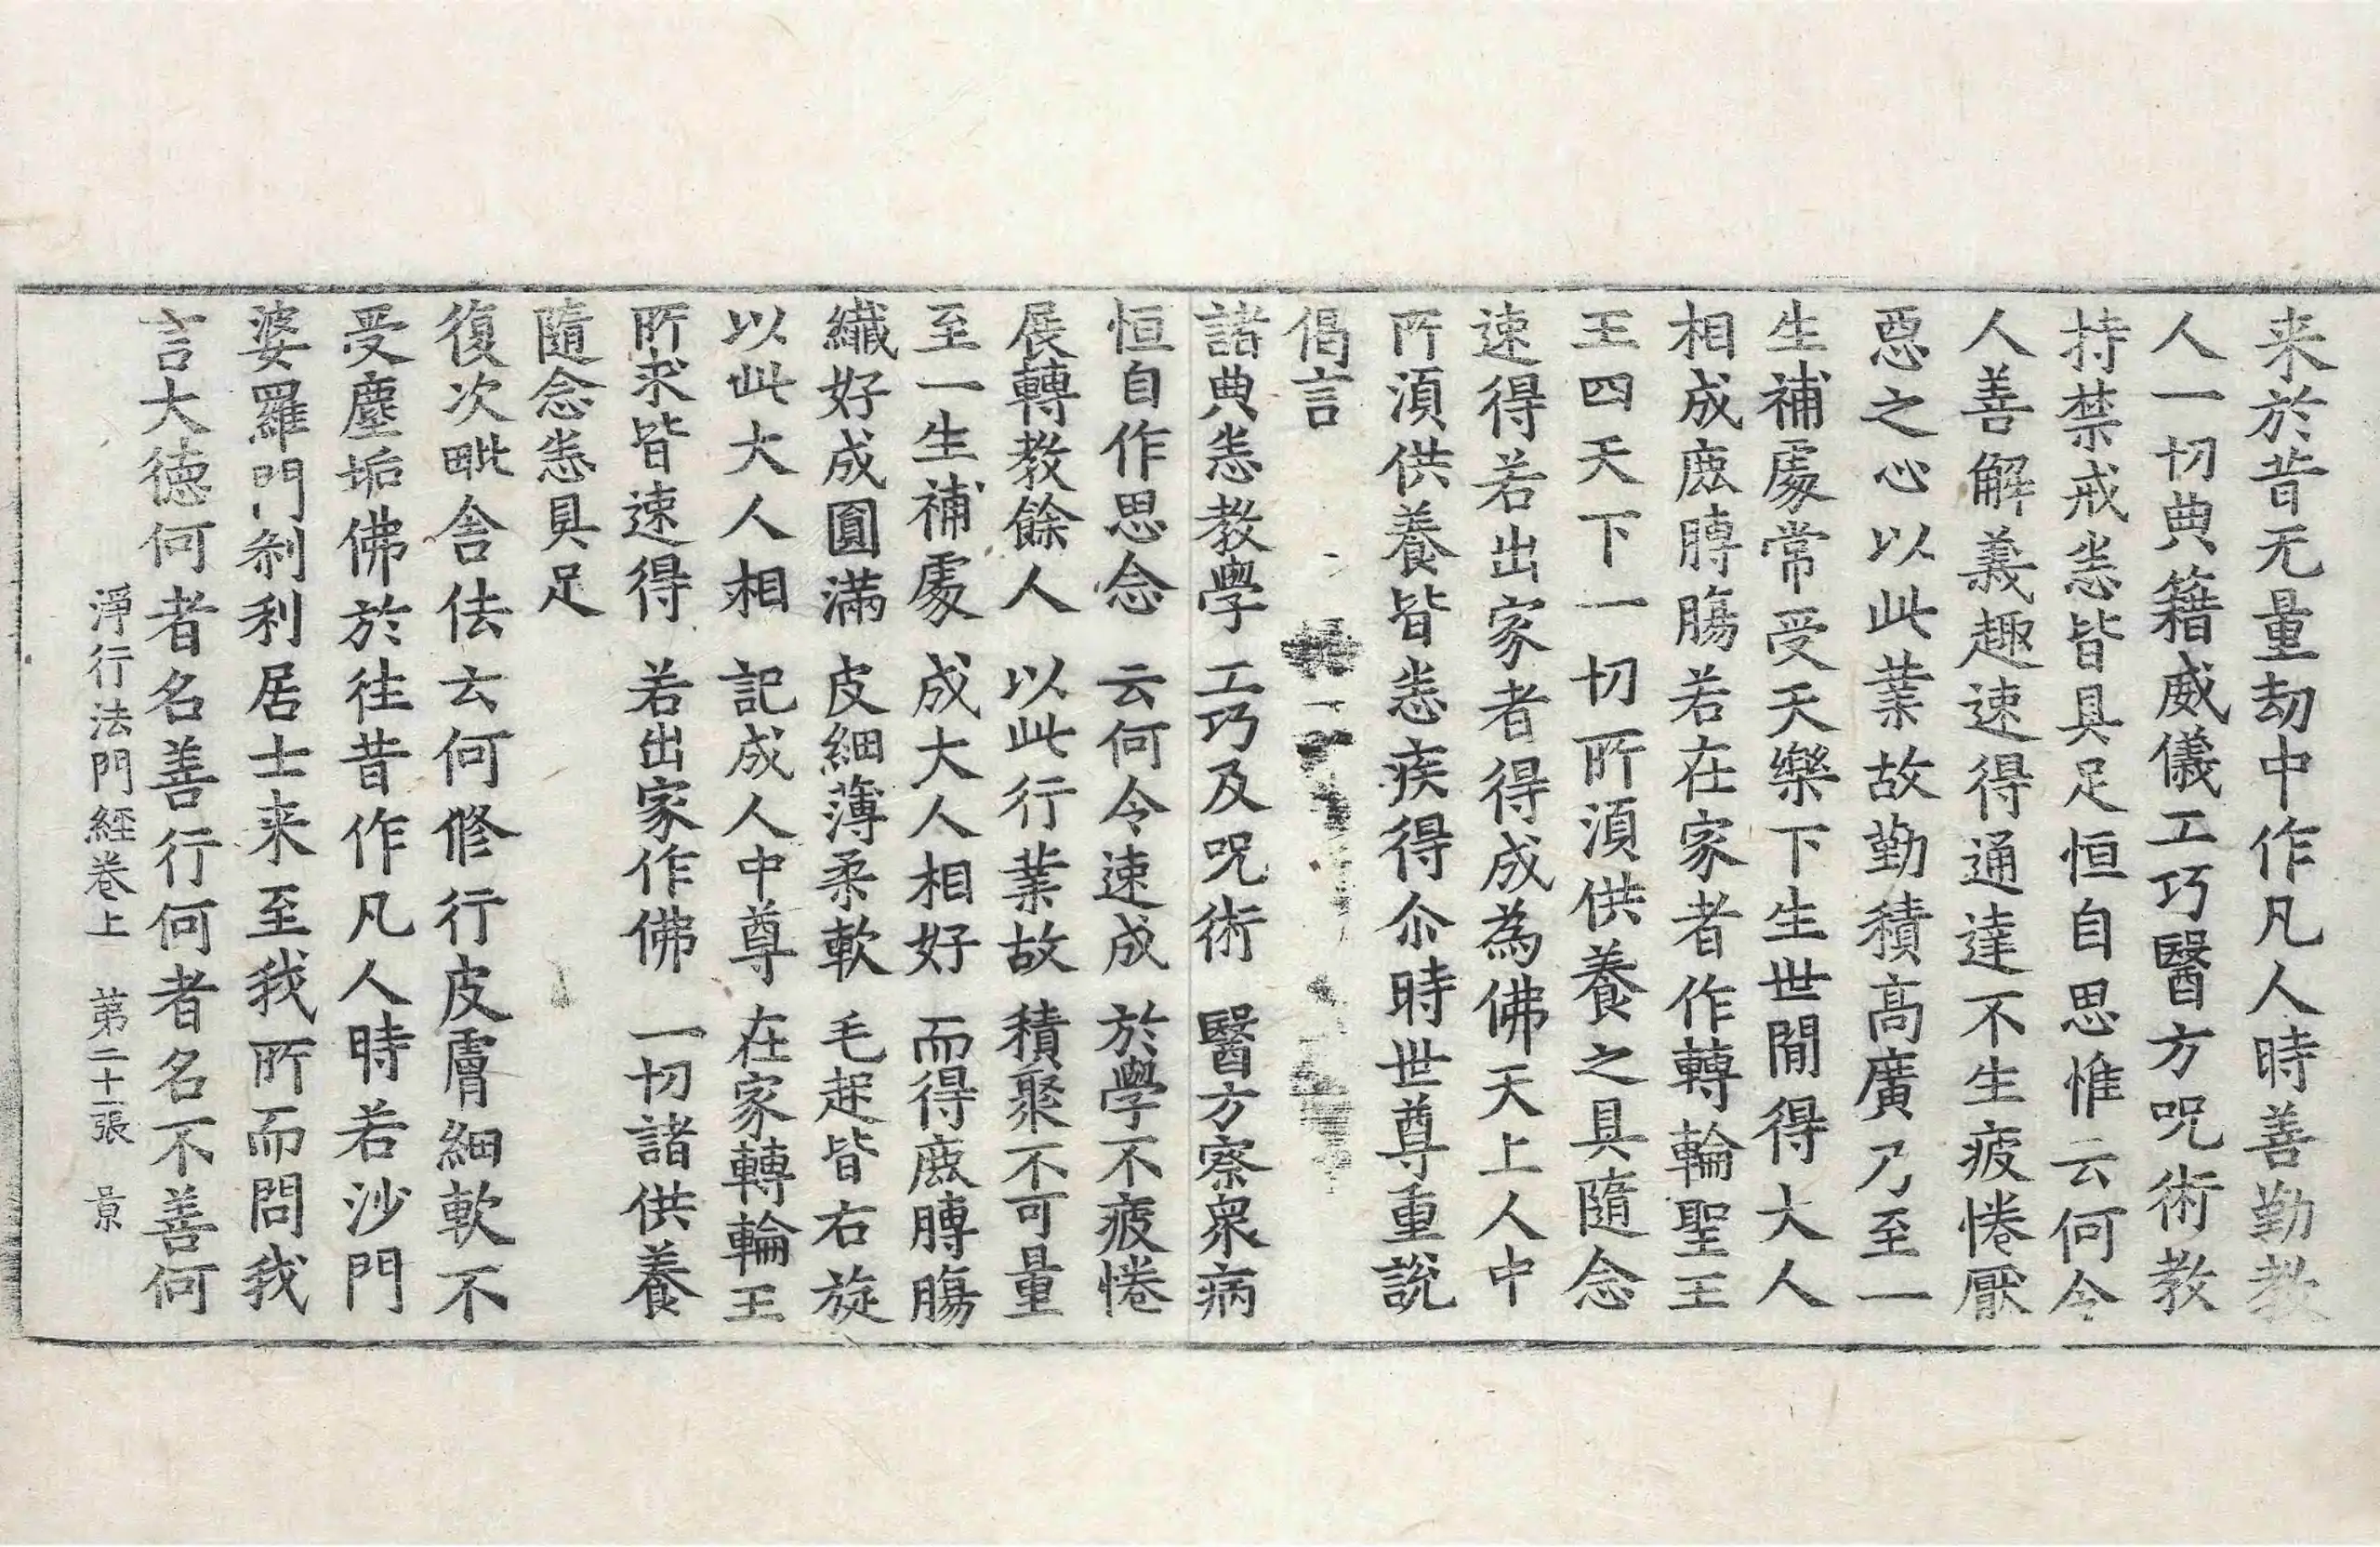 来於昔无量劫中作凡人時善勤教
人一切典籍威儀工巧醫方呪術教
持禁戒恙皆具足恒自思惟云何令
人善解義趣速得通達不生疲惓厭
惡之心以此業故勤積高廣乃至一
生補處常受天樂下生世閒得大人
相成鹿膊膓若在家者作轉輪聖王
王四天下一切所湏供養之具隨念
速得若出家者得成為佛天上人中
所湏供養皆恙疾得尒時世尊重說
偈言
諸典恙教學　工巧及呪術　醫方察衆病
恒自作思念　云何令速成　於學不疲惓
展轉教餘人　以此行業故　積聚不可量
至一生補處　成大人相好　而得鹿膊膓
纖好成圓滿　皮細薄柔軟　毛起皆右旋
以此大人相　記成人中尊　在家轉輪王
所求皆速得　若出家作佛　一切諸供養
隨念恙具足
復次毗舍佉云何修行皮膚細軟不
受塵垢佛於往昔作凡人時若沙門
婆羅門刹利居士来至我所而問我
言大德何者名善行何者名不善何
淨行法門經卷上　第二十一張　景